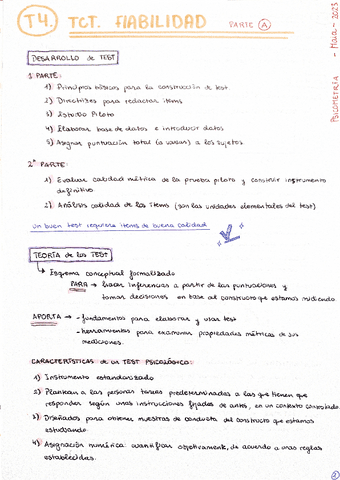 T4. TCT. FIABILIDAD PARTE A
PSICOMETRÍA - Maia - 2023
DESARROLLO de TEST
1ª PARTE:
1) Principios básicos para la construcción de test
2) Directrices para redactar items
3) Estudio Piloto
4) Elaborar base de datos e introducir datos
5) Asignar puntuación total (o varias) a los sujetos
2ª PARTE:
1) Evaluar calidad métrica de la prueba piloto y construir instrumento
definitivo.
2) Análisis calidad de los items (son las unidades elementales del test).
un buen test requiere items de buena calidad
TEORÍA de los TEST
↳ Esquema conceptual formalizado
PARA → hacer inferencias a partir de las puntuaciones y
tomar decisiones en base al constructo que estamos midiendo.
APORTA → -fundamentos para elaborar y usar test
-herramientas para examinar propiedades métricas de sus
mediciones.
CARACTERÍSTICAS de un TEST PSICOLÓGICO:
1) Instrumento estandarizado
2) Plantean a las personas tareas predeterminadas a las que tienen que
responder según unas instrucciones fijadas de antes, en un contexto controlado.
3) Diseñados para obtener muestras de conducta del constructo que estamos
estudiando.
4) Asignación numérica: cuantificar objetivamente, de acuerdo a unas reglas
establecidas.